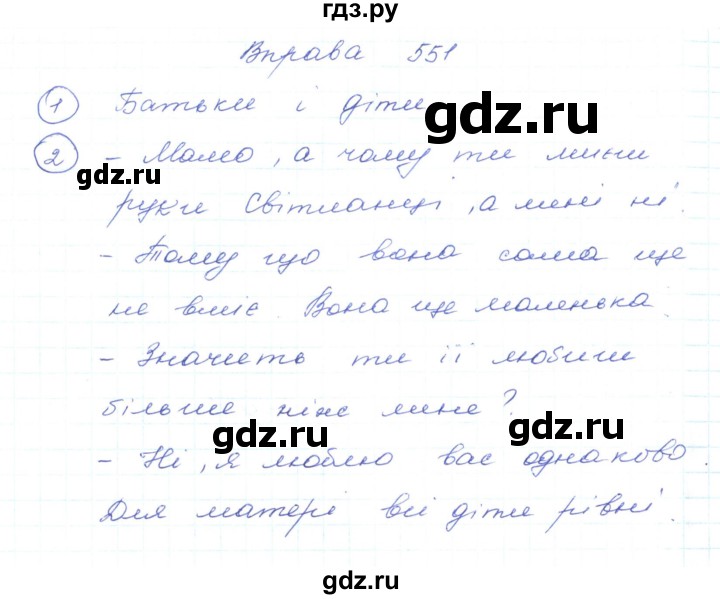 гдз.ру
Вправа 551
1 Батьки і діти
gdz.ru
2 - Мамо, а чому ти миєш
gdz.ru
руки Світланці, а мені ні.
- Тому що вона сама ще
gdz.ru
не вміє. Вона ще маленька.
- Значить ти її любиш
більше ніж мене?
gdz.ru
gdz.ru
- Ні, я люблю вас однаково.
Для матері всі діти рівні.
gdz.ru